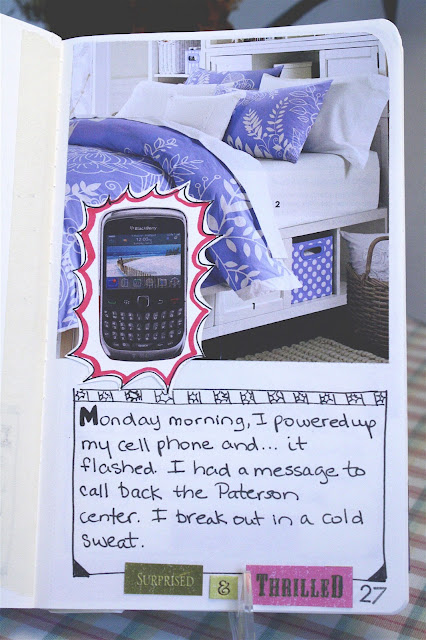 2
1
BlackBerry
Monday morning, I powered up
my cell phone and... it
flashed. I had a message to
call back the Paterson
center. I break out in a cold
sweat.
SURPRISED & THRILLED
27